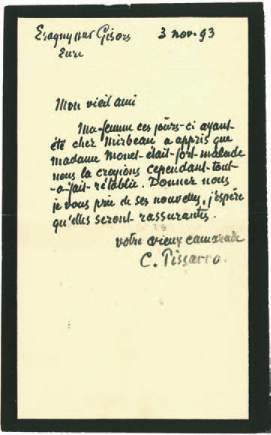 Eragny sur Gisors 3 nov. 93
Eure
Mon vieil ami
Ma femme ces jours-ci ayant
été chez Mirbeau a appris que
madame Monet était fort malade
nous la croyions cependant tout-
à-fait rétablie. Donnez nous
je vous prie de ses nouvelles, j'espère
qu'elles seront rassurantes.
votre vieux camarade
C. Pissarro